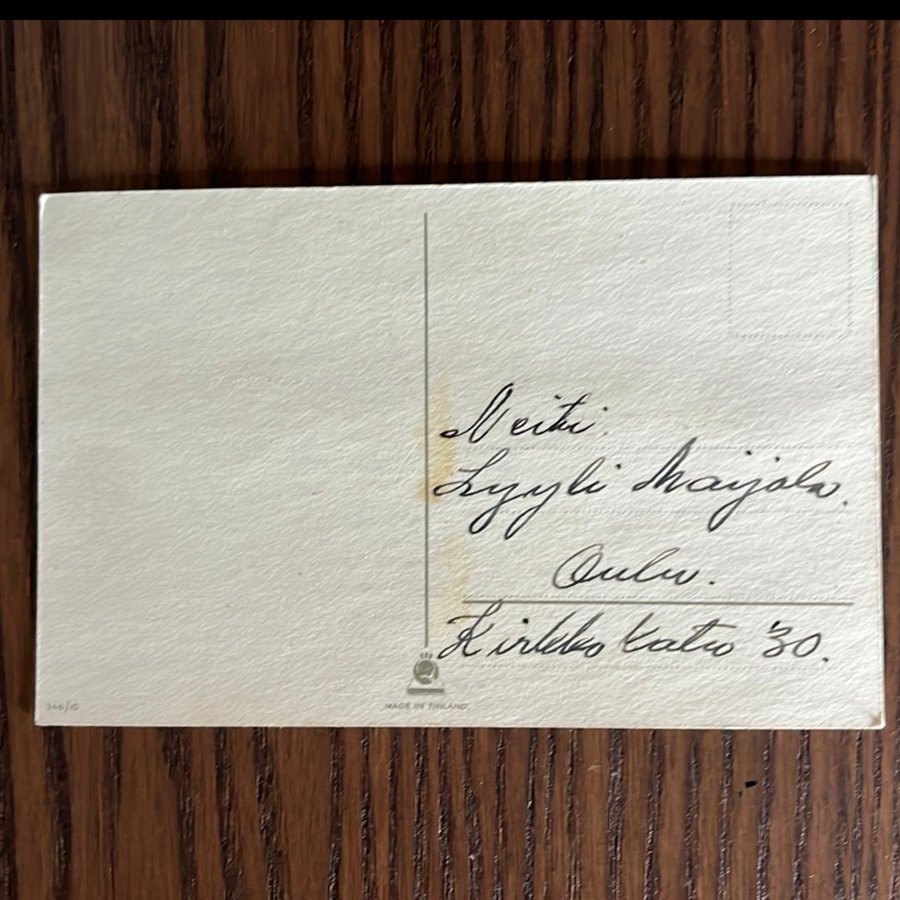 Neiti.
Lyyli Maijala.
Oulu.
Kirkkokatu 30.
346/10
MADE IN FINLAND